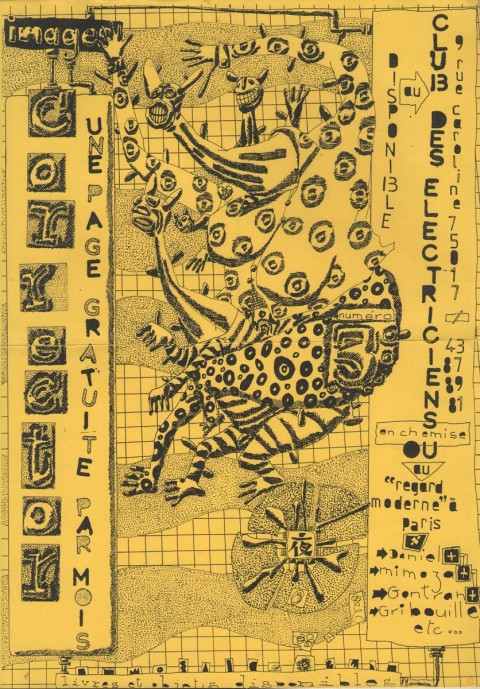 images
Corrector
UNE PAGE GRATUITE PAR MOIS
numéro
夜
DISPONIBLE
au
CLUB DES ELECTRICIENS
9 rue caroline 75017
en chemise
OU
au
"regard
moderne" à
paris
Daniel +
mimoza +
Gontran +
Gribouille
etc...
livres et objets disponibles